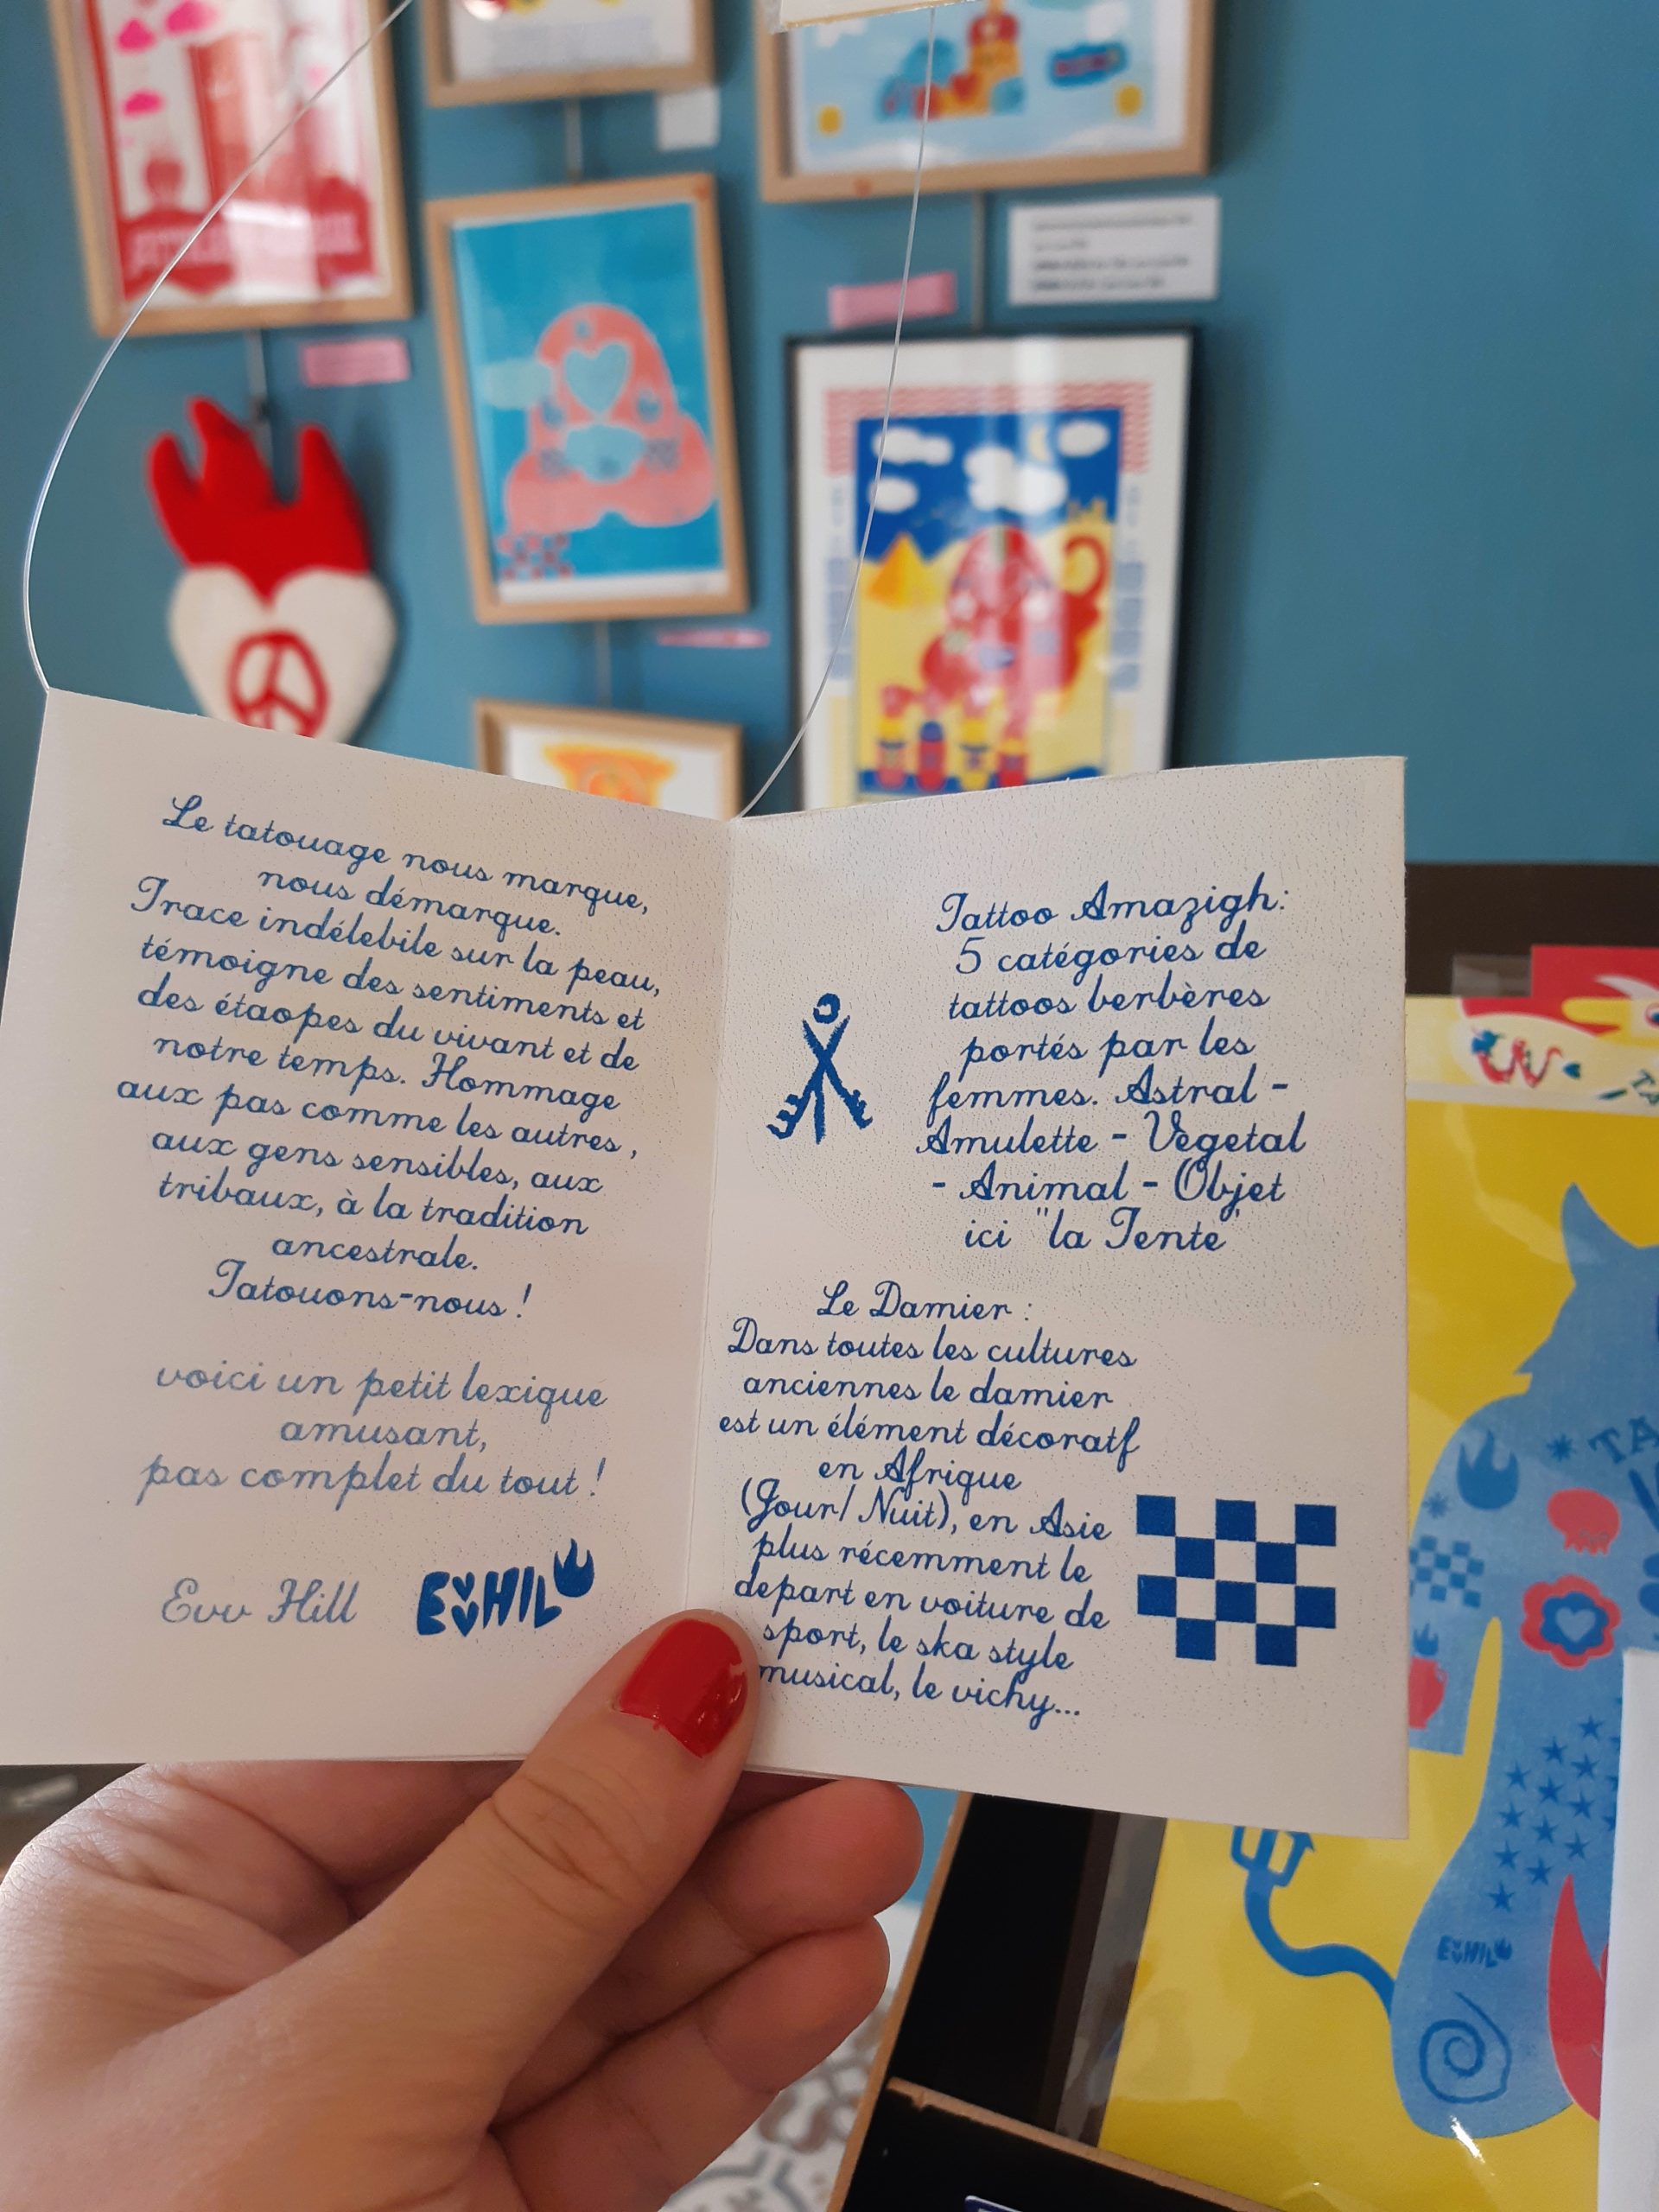 Le tatouage nous marque,
nous démarque.
Trace indélebile sur la peau,
témoigne des sentiments et
des étaopes du vivant et de
notre temps. Hommage
aux pas comme les autres,
aux gens sensibles, aux
tribaux, à la tradition
ancestrale.
Tatouons-nous !
voici un petit lexique
amusant,
pas complet du tout !
Evv Hill
EVVHILL
Tattoo Amazigh:
5 catégories de
tattoos berbères
portés par les
femmes. Astral -
Amulette - Végetal
- Animal - Objet
ici "la Tente"
Le Damier :
Dans toutes les cultures
anciennes le damier
est un élément décoratf
en Afrique
(Jour/ Nuit), en Asie
plus récemment le
depart en voiture de
sport, le ska style
musical, le vichy...
TA
EVVHILL